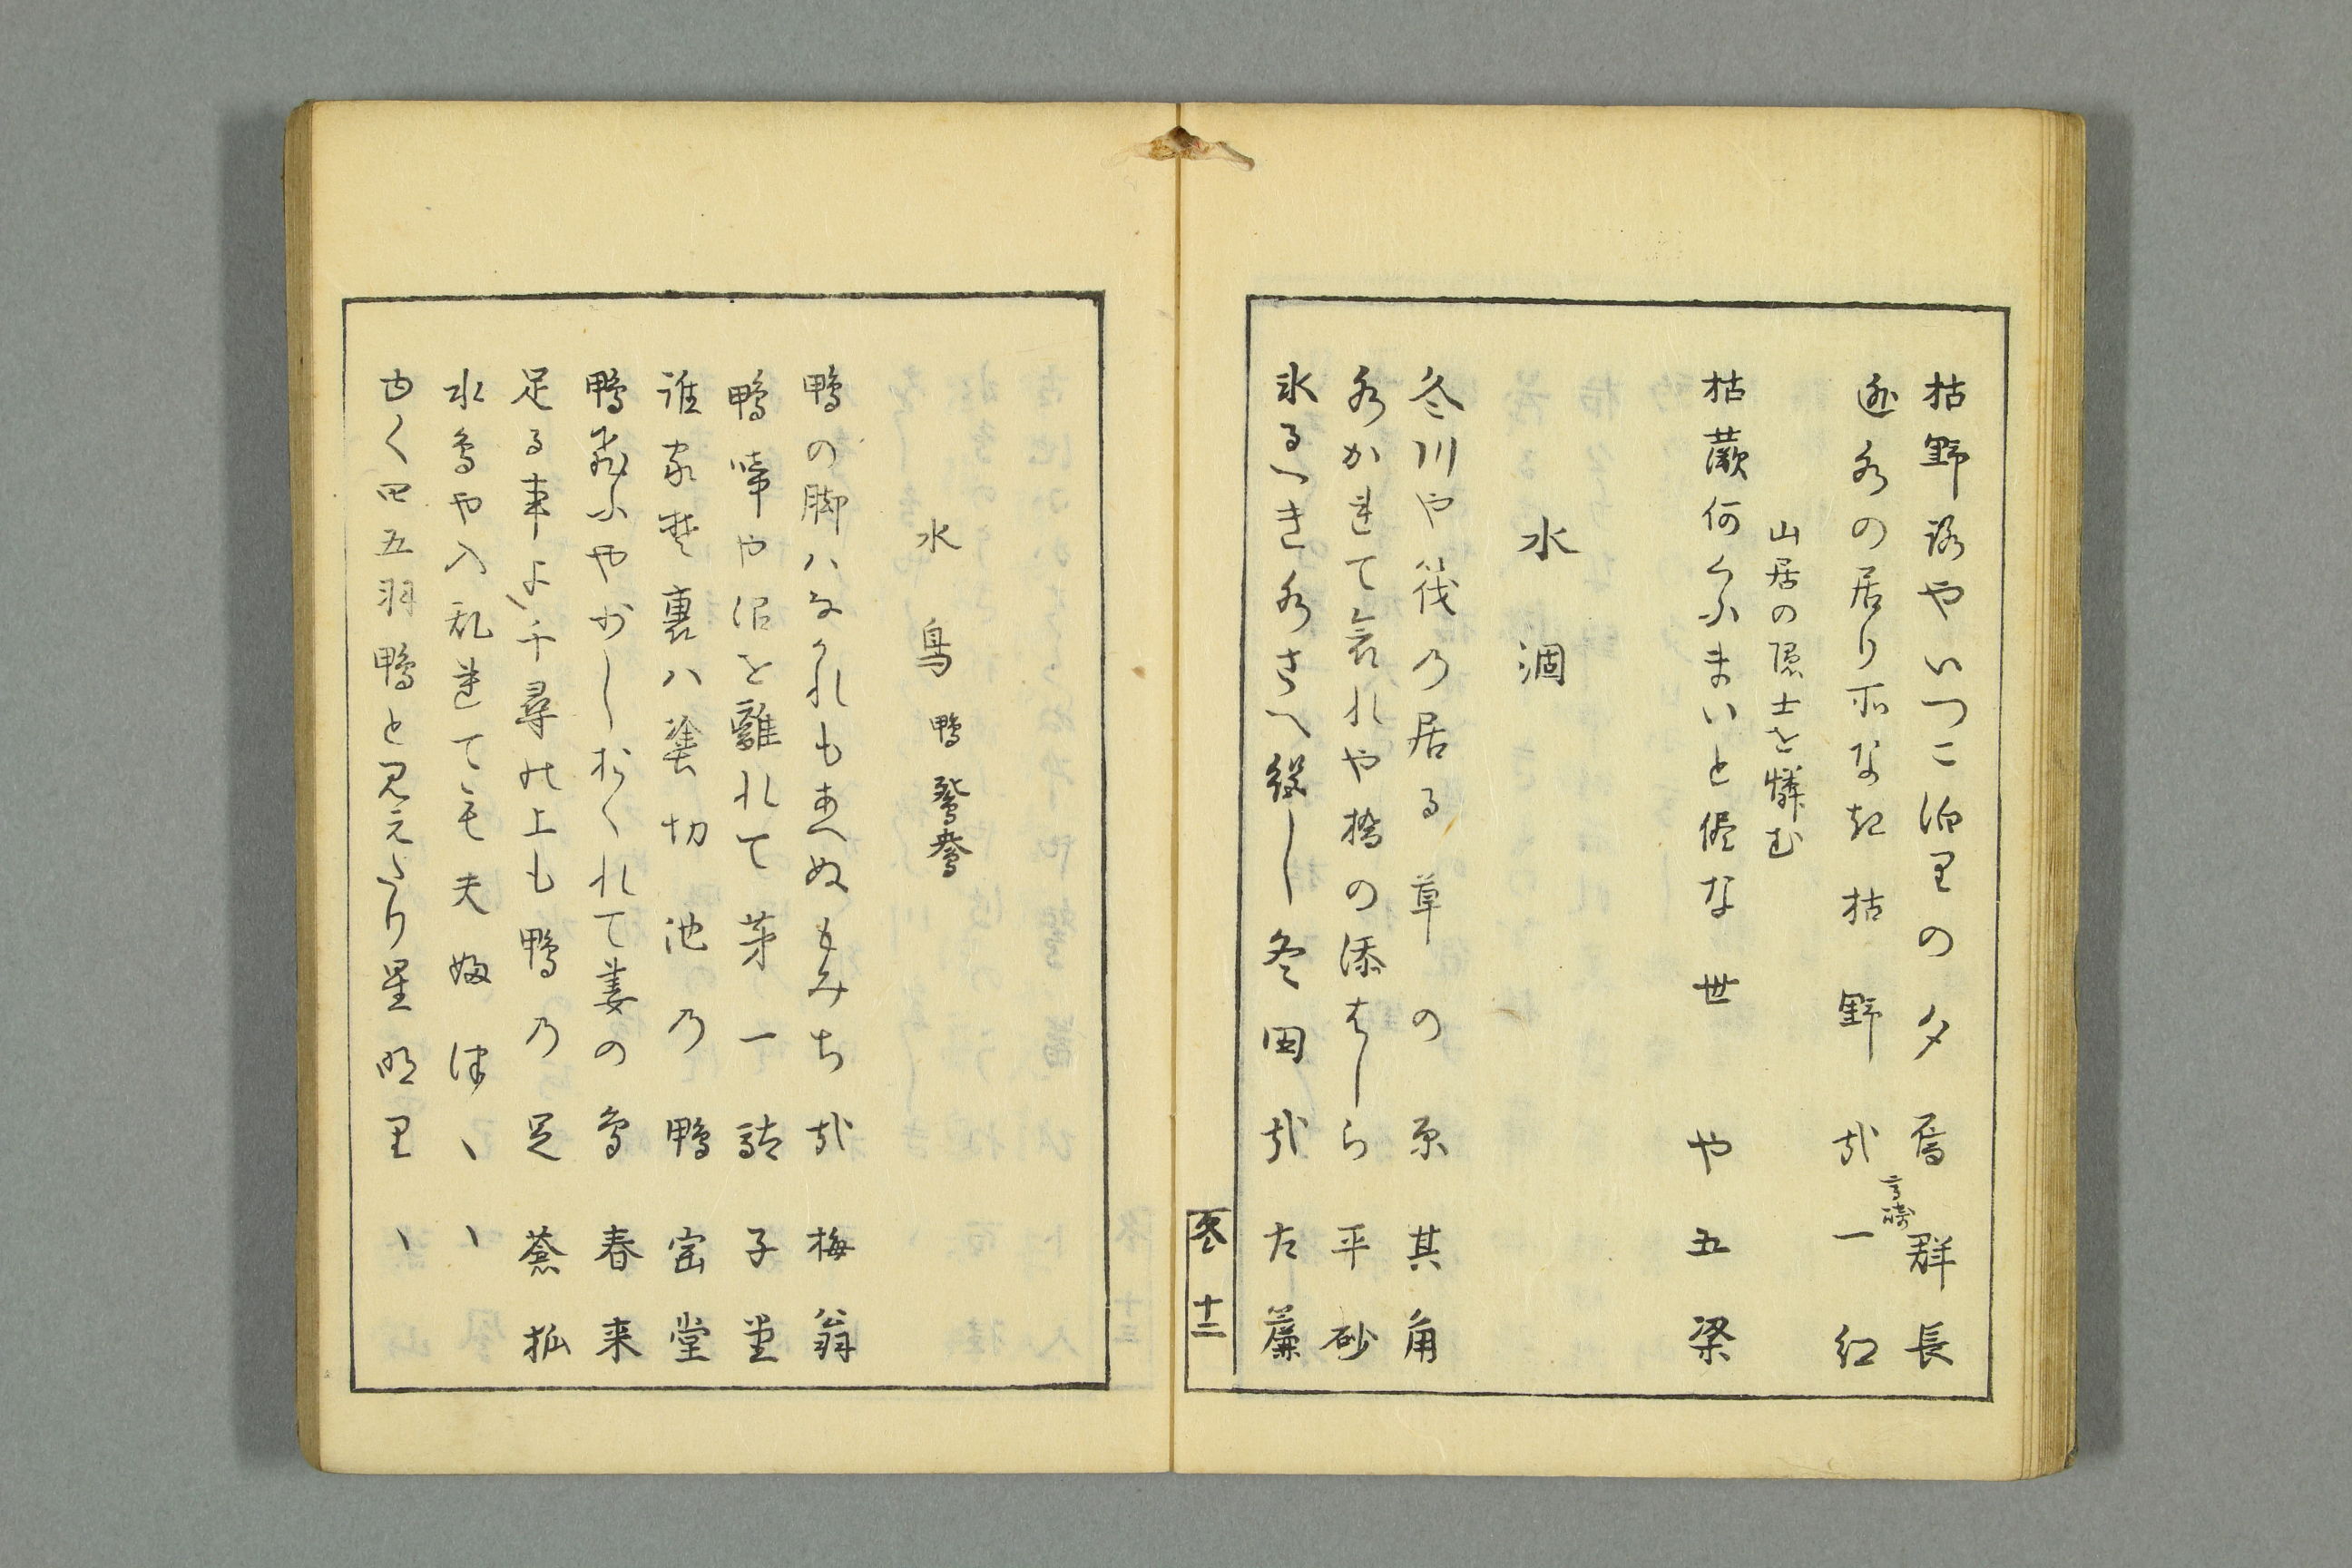 枯野路やいつこ泊里の夕烏 群長
逃水の居り所なき枯野哉 高崎 一紅
山居の隠士を憐む
枯蕨何くふまいと侭な世や 五梁
水涸
冬川や筏の居る草の原 其角
水かれて哀れや橋の添はしら 平砂
氷るへき水さへ絶し冬田哉 左簾
冬 十二
水鳥 鴨 鴛鴦
鴨の脚ハなかれもあへぬもみち哉 梅翁
鴨啼や沼を離れて茅一詰 子堂
誰家歟裏ハ塗切池の鴨 宻堂
鴨飛ふや少しおくれて妻の鳥 春来
足る事よ千尋の上も鴨の足 蒼狐
水鳥や入乱れても夫婦つゝ 、
よく四五羽鴨と見えたり星明里 、